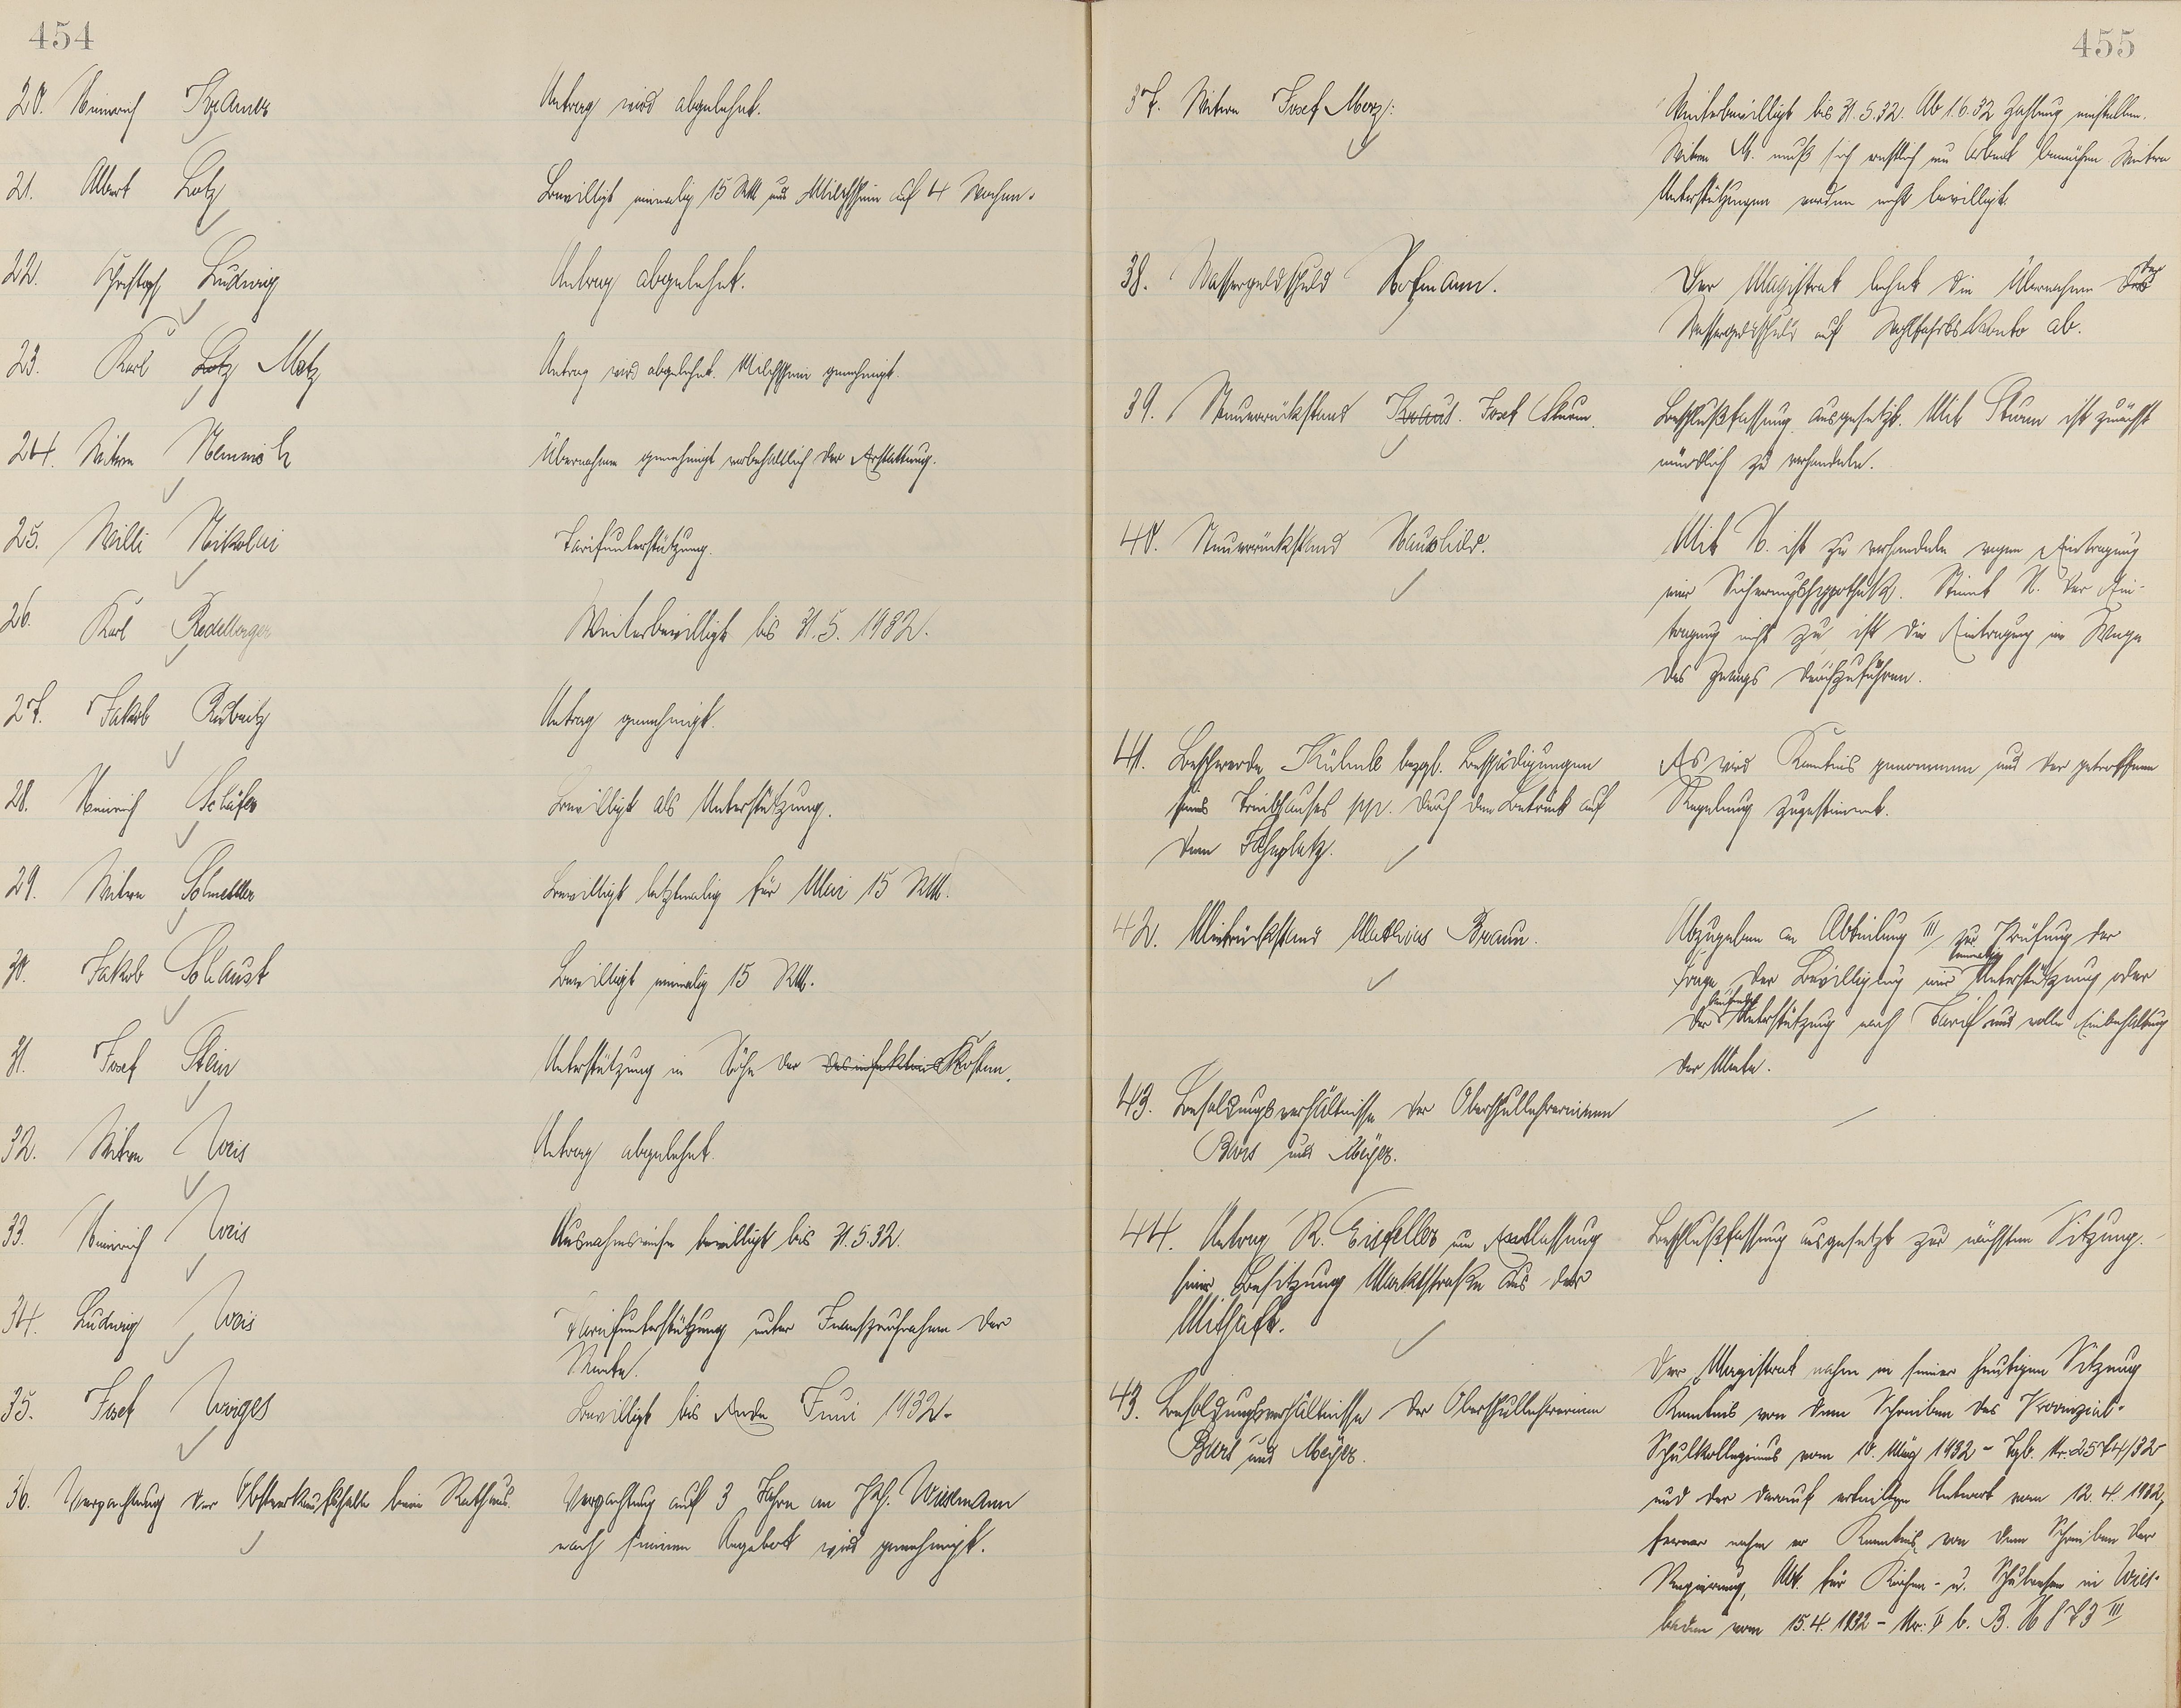 454
20. Heinrich Kramer
Antrag wird abgelehnt.
21. Albert Lotz
Bewilligt einmalig 15 RM und Milchschein auf 4 Wochen.
22. Christoph Ludwig
Antrag abgelehnt.
23. Karl Lotz Motz
Antrag wird abgelehnt. Milchschein genehmigt.
24. Witwe
Übernahme genehmigt vorbehaltlich der Erstattung.
25. Willi Nikolai
Tarifunterstützung.
26. Karl
Weiterbewilligt bis 31.5.1932.
27. Jakob
Antrag genehmigt.
28. Heinrich Schäfer
Bewilligt als Unterstützung.
29. Witwe
Bewilligt letztmalig für Mai 15 RM.
30. Jakob Schaust
Bewilligt einmalig 15 RM.
31. Josef Stein
Unterstützung in Höhe der Desinfektions Kosten.
32. Witwe Weis
Antrag abgelehnt.
33. Heinrich Weis
Ausnahmsweise bewilligt bis 31.5.32.
34. Ludwig Weis
Tarifunterstützung unter Inanspruchnahme der
Rente.
35. Josef Werges
Bewilligt bis Ende Juni 1932.
36. Verpachtung der Obstverkaufshalle beim Rathaus.
Verpachtung auf 3 Jahre an Joh. Wieslmann
nach seinem Angebot wird genehmigt.
455
37. Witwe Josef Merz:
Weiterbewilligt bis 31.5.32. Ab 1.6.32 Zahlung einstellen.
Witwe M. muß sich restlich um Arbeit bemühen Weitere
Unterstützungen werden nicht bewilligt.
38. Wassergeldschuld Hofmann.
Der Magistrat lehnt die Übernahme des der
Wassergeldschuld auf Wohlfahrtskonto ab.
39. Steuerrückstand Kraus. Josef Sturm.
Beschlußfassung ausgesetzt. Mit Sturm ist zunächst
mündlich zu verhandeln.
40. Steuerrückstand Haushild.
Mit H. ist zu verhandeln wegen Eintragung
einer Sicherungshypothek. Stimmt H. der Ein-
tragung nicht zu, ist die Eintragung im Wege
des Zwangs durchzuführen.
41. Beschwerde Kühnle bezgl. Beschädigungen
seines Treibhauses pp. durch den Betrieb auf
dem Jahnplatz.
Es wird Kenntnis genommen und der getroffenen
Regelung zugestimmt.
42. Mietrückstand Mathias Braun.
Abzugeben an Abteilung III zur Prüfung der
Frage der Bewilligung einer einmaligen Unterstützung oder
der laufenden Unterstützung nach Tarif und volle Einbehaltung
der Miete.
43. Besoldungsverhältnisse der Oberschullehrerinnen
Bars und Meyer.
–
44. Antrag R. Eisfeller um Entlassung
seiner Besitzung Marktstraße aus der
Mithaft.
Beschlußfassung ausgesetzt zur nächsten Sitzung.
43. Besoldungsverhältnisse der Oberschullehrerinnen
Bars und Meyer.
Der Magistrat nahm in seiner heutigen Sitzung
Kenntnis von dem Schreiben des Provinzial-
Schulkollegiums vom 10. März 1932 – Tgb. Nr. 2574/32
und der darauf erteilten Antwort vom 12.4.1932,
ferner nahm er Kenntnis von dem Schreiben der
Regierung, Abt. für Kirchen- u. Schulwesen in Wies-
baden vom 15.4.1932 – Nr. II b. B.